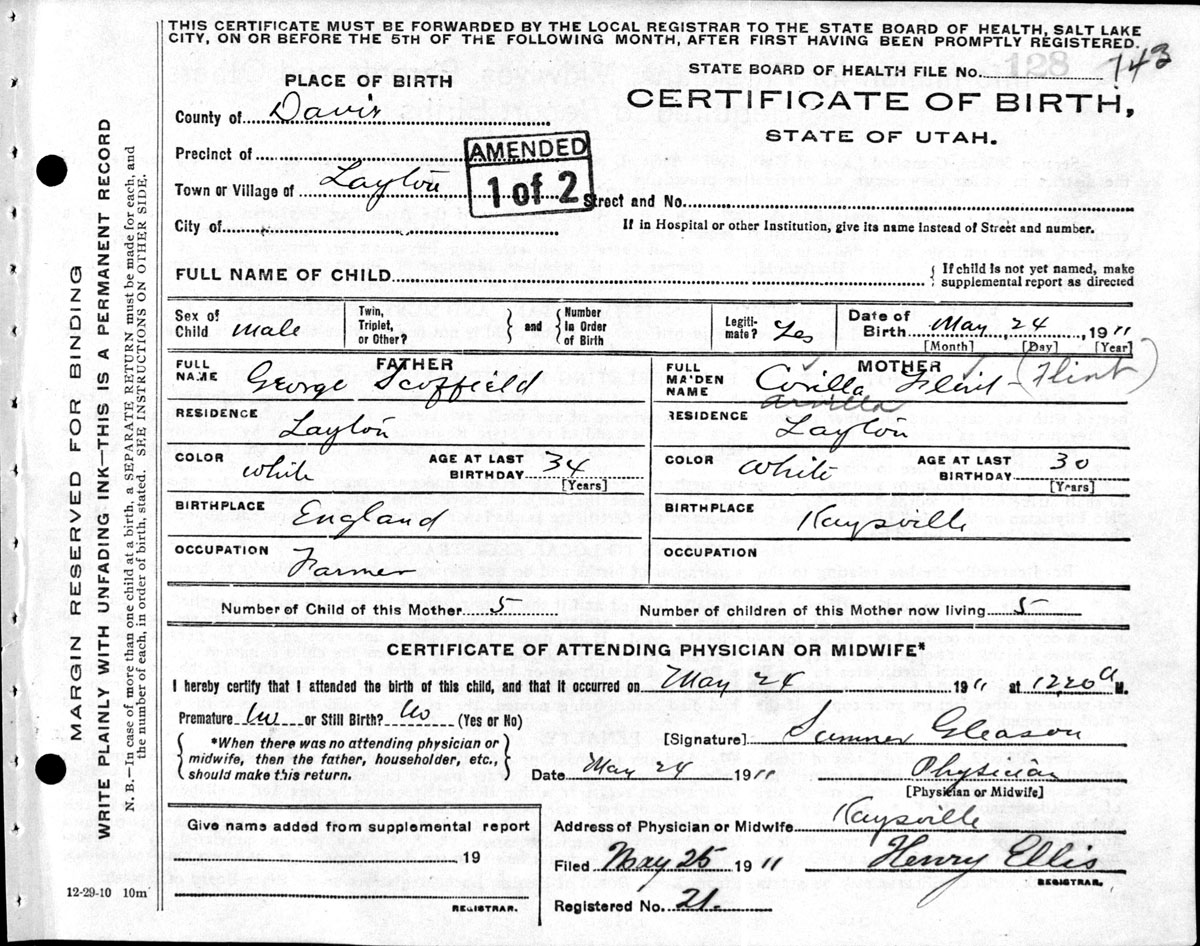 THIS CERTIFICATE MUST BE FORWARDED BY THE LOCAL REGISTRAR TO THE STATE BOARD OF HEALTH, SALT LAKE
CITY, ON OR BEFORE THE 5TH OF THE FOLLOWING MONTH, AFTER FIRST HAVING BEEN PROMPTLY REGISTERED.
STATE BOARD OF HEALTH FILE No. 128 143
PLACE OF BIRTH
CERTIFICATE OF BIRTH,
STATE OF UTAH.
County of Davis
Precinct of
AMENDED
1 of 2
Town or Village of Layton
Street and No.
City of
If in Hospital or other Institution, give its name instead of Street and number.
FULL NAME OF CHILD
If child is not yet named, make
supplemental report as directed
Sex of Child male
Twin, Triplet, or Other?
and
Number In Order of Birth
Legiti-mate? Yes
Date of Birth May 24, 1911
[Month] [Day] [Year]
FATHER
FULL NAME George Scoffield
RESIDENCE
Layton
COLOR white
AGE AT LAST BIRTHDAY 34
[Years]
BIRTHPLACE
England
OCCUPATION
Farmer
MOTHER
FULL MAIDEN NAME Corilla Flint (Flint)
Arvilla
RESIDENCE
Layton
COLOR White
AGE AT LAST BIRTHDAY 30
[Years]
BIRTHPLACE
Kaysville
OCCUPATION
Number of Child of this Mother 5
Number of children of this Mother now living 5
CERTIFICATE OF ATTENDING PHYSICIAN OR MIDWIFE*
I hereby certify that I attended the birth of this child, and that it occurred on May 24 1911 at 1220 a M.
Premature or Still Birth? No (Yes or No)
*When there was no attending physician or
midwife, then the father, householder, etc.,
should make this return.
[Signature] Sumner Gleason
Date May 24 1911
Physician
[Physician or Midwife]
Give name added from supplemental report
19
REGISTRAR.
Address of Physician or Midwife Kaysville
Filed May 25 1911
Henry Ellis
REGISTRAR.
Registered No. 21-
12-29-10 10m
MARGIN RESERVED FOR BINDING
WRITE PLAINLY WITH UNFADING INK—THIS IS A PERMANENT RECORD
N. B.—In case of more than one child at a birth, a SEPARATE RETURN must be made for each, and
the number of each, in order of birth, stated. SEE INSTRUCTIONS ON OTHER SIDE.